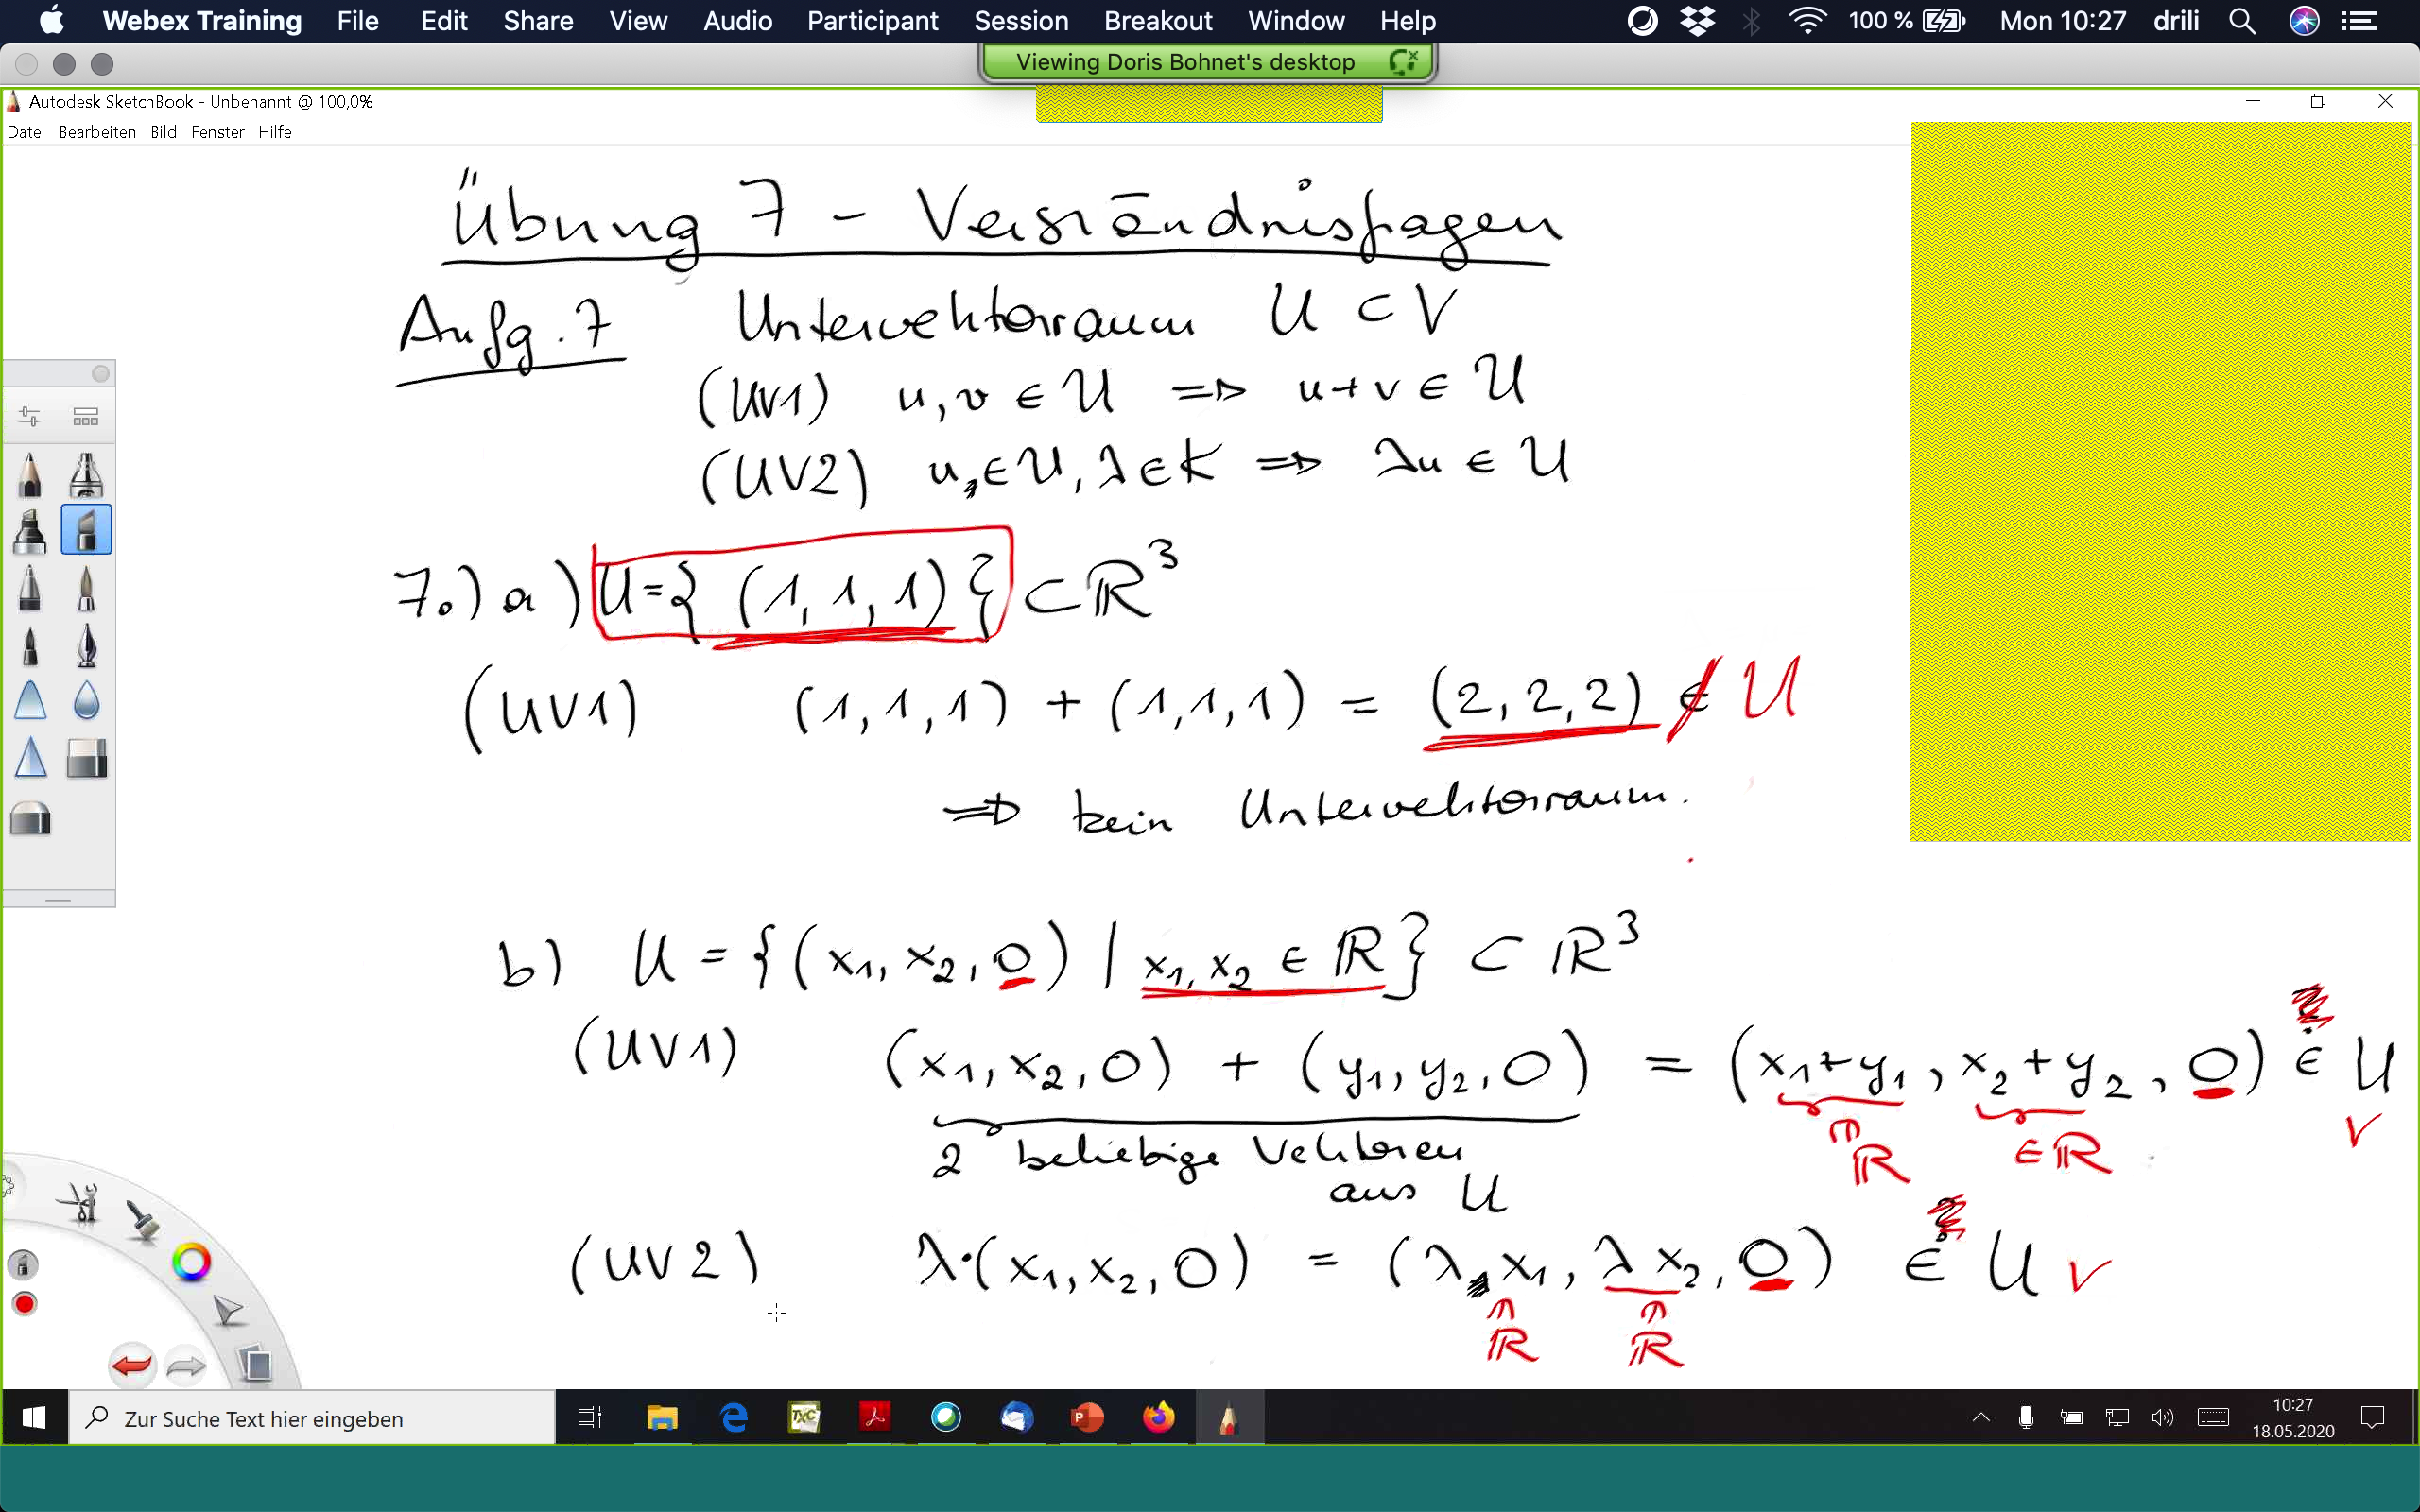 Webex Training File Edit Share View Audio Participant Session Breakout Window Help 100 % Mon 10:27 drili
Viewing Doris Bohnet's desktop
Autodesk SketchBook - Unbenannt @ 100,0%
Datei Bearbeiten Bild Fenster Hilfe
Übung 7 - Verständnisfragen
Aufg. 7 Untervektorraum U ⊂ V
(UV1) u, v ∈ U ⇒ u + v ∈ U
(UV2) u, ∈ U, λ ∈ K ⇒ λu ∈ U
7.) a) U = { (1, 1, 1) } ⊂ ℝ³
(UV1) (1, 1, 1) + (1, 1, 1) = (2, 2, 2) ∉ U
⇒ kein Untervektorraum.
b) U = { (x₁, x₂, 0) | x₁, x₂ ∈ ℝ } ⊂ ℝ³
(UV1) (x₁, x₂, 0) + (y₁, y₂, 0) = (x₁ + y₁, x₂ + y₂, 0) ∈ U ✓
∈ ℝ ∈ ℝ
2 beliebige Vektoren
aus U
(UV2) λ · (x₁, x₂, 0) = (λ x₁, λ x₂, 0) ∈ U ✓
∈ ℝ ∈ ℝ
Zur Suche Text hier eingeben
TXC
P
10:27
18.05.2020